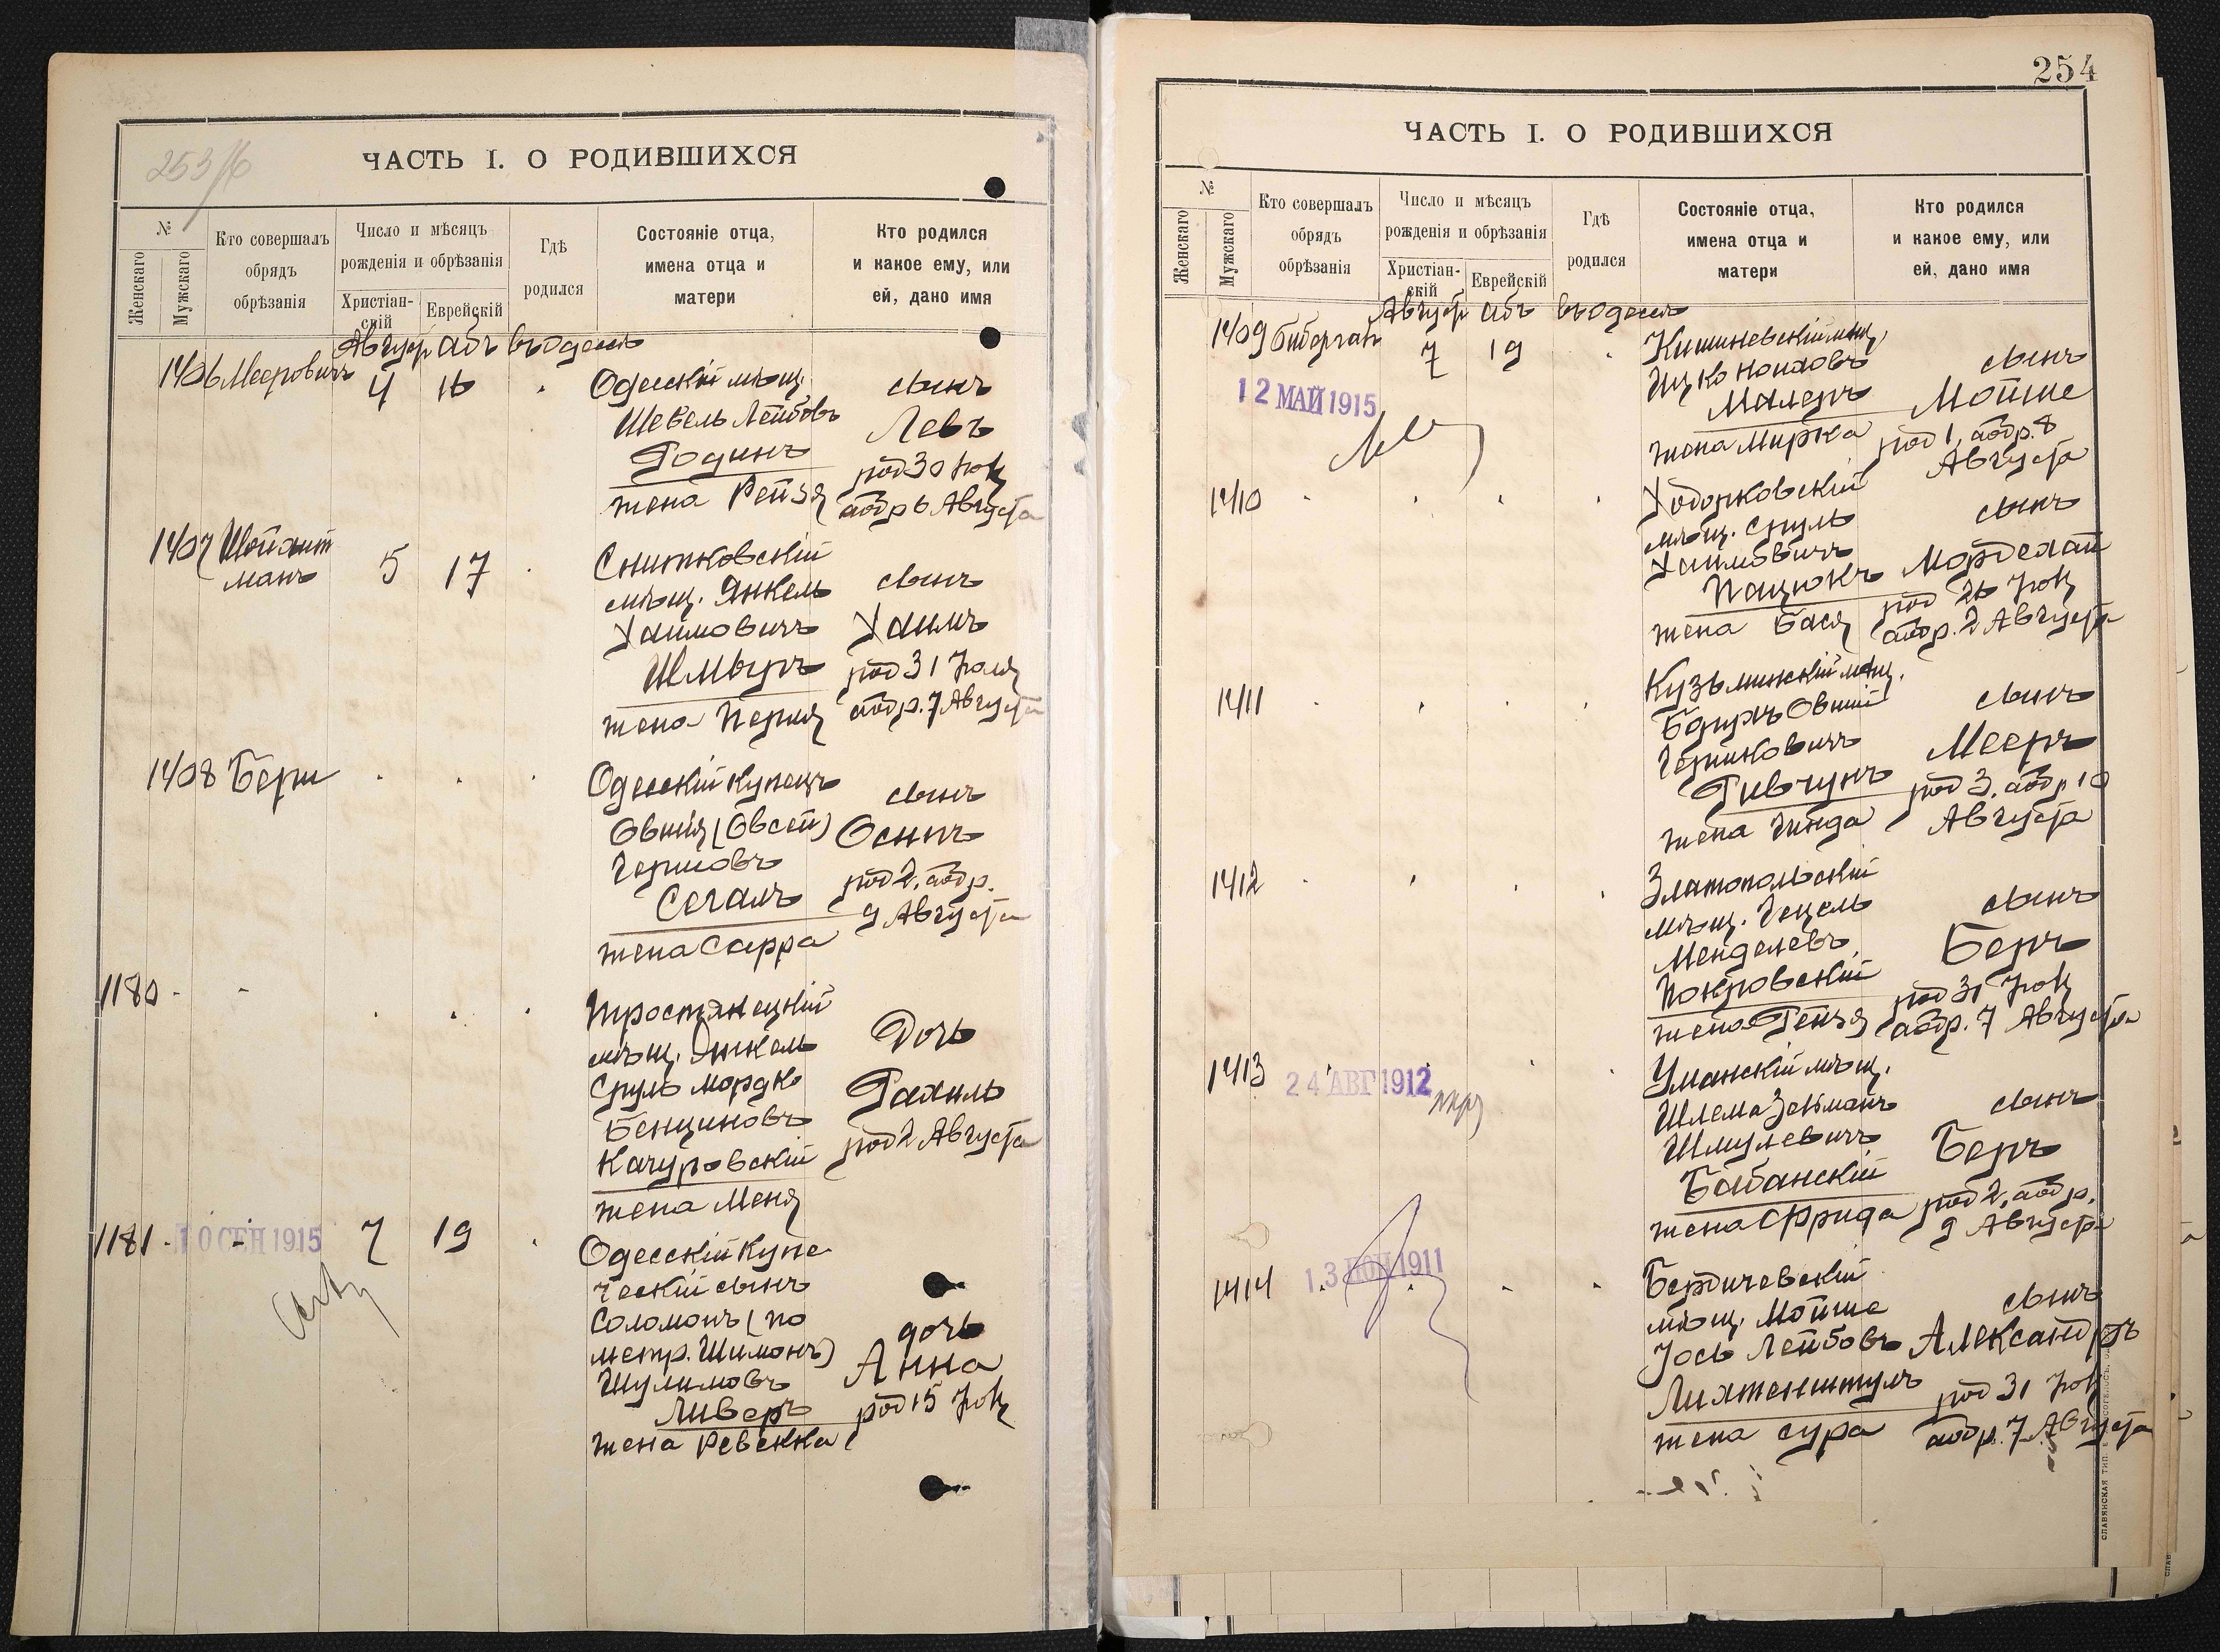 253/б
ЧАСТЬ I. О РОДИВШИХСЯ
№
Женскаго
Мужскаго
Кто совершалъ
обрядъ
обрѣзанія
Число и мѣсяцъ
рожденія и обрѣзанія
Христіан-
скій
Еврейскій
Гдѣ
родился
Состояніе отца,
имена отца и
матери
Кто родился
и какое ему, или
ей, дано имя
Август Абъ въ Одессѣ
1406 Мееровичъ 4 16
Одесскій мѣщ.
Шевель Лейбовъ
Родинъ
жена Рейзя
сынъ
Левъ
род 30 Іюл
аобр 6 Августа
1407 Шойхит
манъ
5 17
Снитковскій
мѣщ. Янкель
Хаимовичъ
Шмыръ
жена Перля
сынъ
Хаимъ
род 31 Іюля
аобр. 7 Августа
1408 Бери
Одесскій купецъ
Овшія (Овсей)
Гершовъ
Сегалъ
жена Сарра
сынъ
Осипъ
род 2, аобр.
9 Августа
1180
Тростянецкій
мѣщ. Янкель
Сруль Мордко
Бенціновъ
Качуровскій
жена Меня
Дочь
Рахиль
род 2 Августа
1181 10 СЕН 1915 7 19
Одесскій купе
ческій сынъ
Соломонъ (по
метр. Шимонъ)
Шулимовъ
Ливеръ
жена Ревекка
дочь
Анна
род 15 Іюл
254
ЧАСТЬ I. О РОДИВШИХСЯ
№
Женскаго
Мужскаго
Кто совершалъ
обрядъ
обрѣзанія
Число и мѣсяцъ
рожденія и обрѣзанія
Христіан-
скій
Еврейскій
Гдѣ
родился
Состояніе отца,
имена отца и
матери
Кто родился
и какое ему, или
ей, дано имя
Август Абъ въ Одессѣ
1409 Бибергал 7 19
12 МАЙ 1915
Кишиневскій мѣщ.
Ицко Нохимовъ
Малеръ
жена Мирка
сынъ
Мойше
род 1, аобр. 8
Августа
1410
Ходорковскій
мѣщ. Сруль
Хаимовичъ
Пацюкъ
жена Бася
сынъ
Мордехай
род 26 Іюл
аобр. 2 Августа
1411
Кузьминскій мѣщ.
Борухъ Овшій
Гершковичъ
Гивчунъ
жена Гинда
сынъ
Мееръ
род 3, аобр 10
Августа
1412
Златопольскій
мѣщ. Гецель
Менделевъ
Покровскій
жена Рейзя
сынъ
Беръ
род 31 Іюл
аобр. 7 Августа
1413 24 АВГ 1912
Уманскій мѣщ.
Шлема Зельманъ
Шмулевичъ
Бабанскій
жена Фрида
сынъ
Беръ
род 2, аобр.
9 Августа
1414 13 1911
Бердичевскій
мѣщ. Мойше
Іось Лейбовъ
Лихтенштулъ
жена Сура
сынъ
Александръ
род 31 Іюл
аобр. 7 Августа